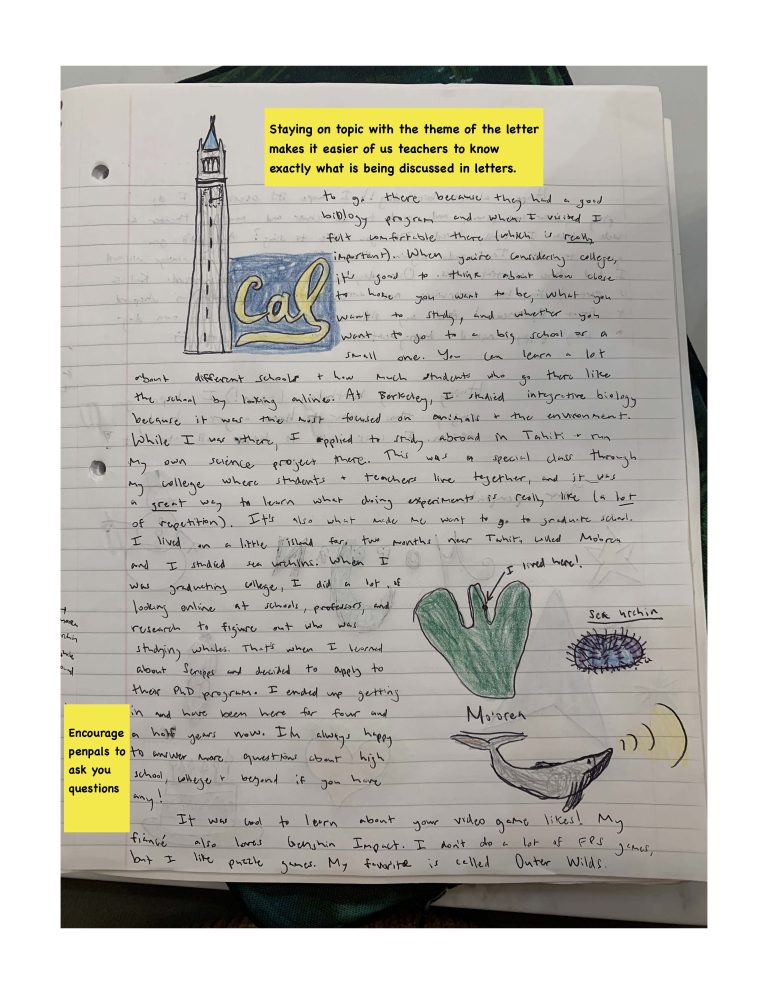 Staying on topic with the theme of the letter
makes it easier of us teachers to know
exactly what is being discussed in letters.
to go there because they had a good
biology program and when I visited I
felt comfortable there (which is really
important). When you're considering college,
it's good to think about how close
to home you want to be, what you
want to study, and whether you
want to go to a big school or a
small one. You can learn a lot
Cal
about different schools + how much students who go there like
the school by looking online. At Berkeley, I studied integrative biology
because it was the most focused on animals + the environment.
While I was there, I applied to study abroad in Tahiti + run
my own science project there. This was a special class through
my college where students + teachers live together, and it was
a great way to learn what doing experiments is really like (a lot
of repetition). It's also what made me want to go to graduate school.
I lived on a little island for two months near Tahiti called Mo'orea
and I studied sea urchins. When I
was graduating college, I did a lot of
looking online at schools, professors, and
research to figure out who was
studying whales. That's when I learned
about Scripps and decided to apply to
their PhD program. I ended up getting
in and have been here for four and
a half years now. I'm always happy
to answer more questions about high
school, college + beyond if you have
any!
I lived here!
Sea urchin
Mo'orea
Encourage
penpals to
ask you
questions
It was cool to learn about your video game likes! My
fiancé also loves Genshin Impact. I don't do a lot of FPS games,
but I like puzzle games. My favorite is called Outer Wilds.